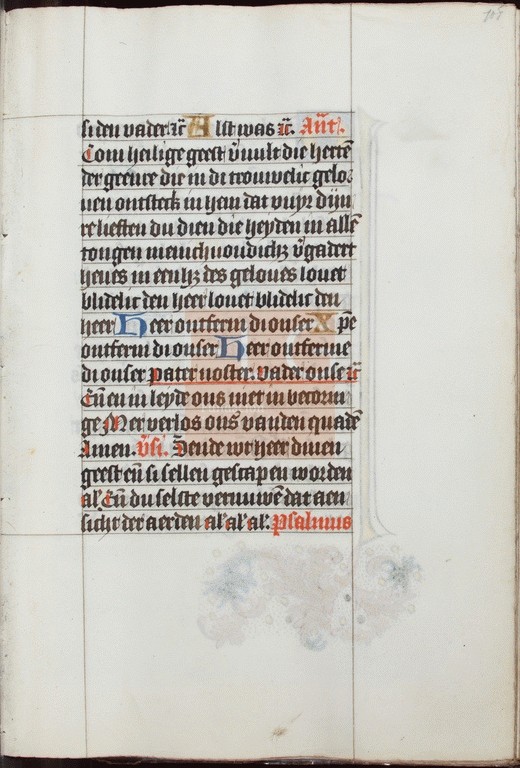 105
si den vader ⁊c̄ Alst was ⁊c̄. Ant̄.
Com heilige geest v̄vult die hertē
der geenre die in di trouwelic gelo⸗
uen ontsteck in hem dat vuyr dijn
re liefften du dien die heyden in allē
tongen menichuoudicħ v̄gadert
heues in eenħ des geloues louet
blidelic den heer louet blidelic den
heer Heer ontferm di onser Xpe
ontferm di onser Heer ontferme
di onser pater noster. Vader onse ⁊c̄
Eñ en leyde ons niet in becorin
ge Mer verlos ons vanden quadē
Amen. v̄si. Sende wt heer dinen
geest eñ si sellen gescapen worden
al'. Eñ du selste vernuwē dat aen
sicht der aerden al' al' al'. psalmus